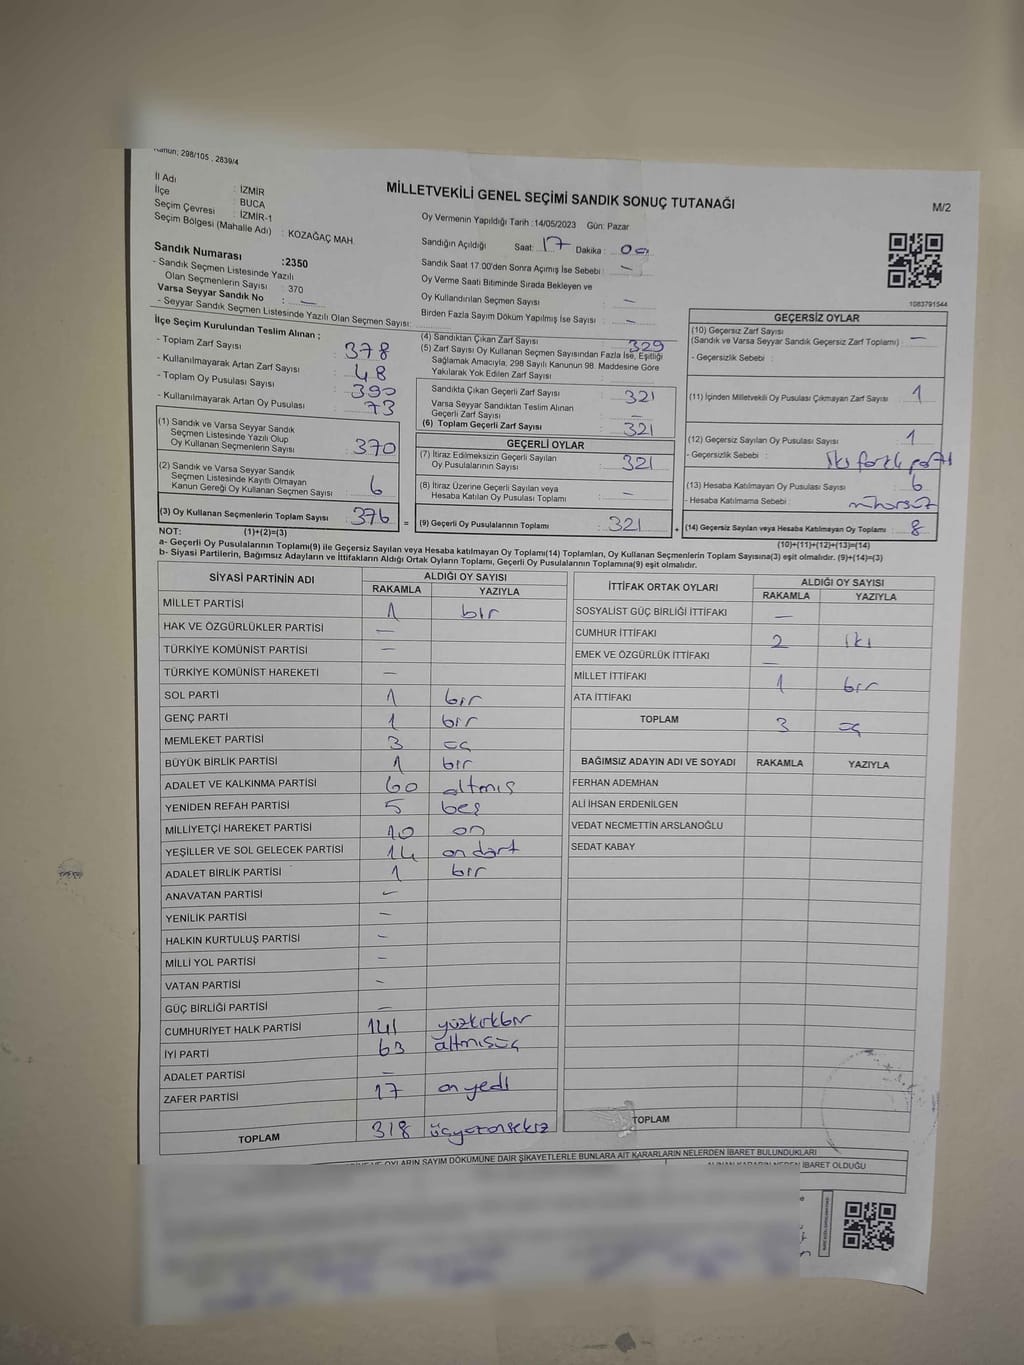 Kanun; 298/105 , 2839/4
İl Adı : İZMİR
İlçe : BUCA
Seçim Çevresi : İZMİR-1
Seçim Bölgesi (Mahalle Adı) : KOZAĞAÇ MAH.
MİLLETVEKİLİ GENEL SEÇİMİ SANDIK SONUÇ TUTANAĞI
M/2
Oy Vermenin Yapıldığı Tarih :14/05/2023 Gün: Pazar
Sandığın Açıldığı Saat: 17 Dakika : 00
Sandık Saat 17:00'den Sonra Açımış İse Sebebi : —
Oy Verme Saati Bitiminde Sırada Bekleyen ve
Oy Kullandırılan Seçmen Sayısı : —
Birden Fazla Sayım Döküm Yapılmış İse Sayısı : —
Sandık Numarası :2350
- Sandık Seçmen Listesinde Yazılı
Olan Seçmenlerin Sayısı : 370
Varsa Seyyar Sandık No : —
- Seyyar Sandık Seçmen Listesinde Yazılı Olan Seçmen Sayısı:
1083791544
İlçe Seçim Kurulundan Teslim Alınan ;
- Toplam Zarf Sayısı : 378
- Kullanılmayarak Artan Zarf Sayısı : 48
- Toplam Oy Pusulası Sayısı : 390
- Kullanılmayarak Artan Oy Pusulası : 73
(1) Sandık ve Varsa Seyyar Sandık
Seçmen Listesinde Yazılı Olup
Oy Kullanan Seçmenlerin Sayısı : 370
(2) Sandık ve Varsa Seyyar Sandık
Seçmen Listesinde Kayıtlı Olmayan
Kanun Gereği Oy Kullanan Seçmen Sayısı : 6
(3) Oy Kullanan Seçmenlerin Toplam Sayısı : 376
(4) Sandıktan Çıkan Zarf Sayısı : 329
(5) Zarf Sayısı Oy Kullanan Seçmen Sayısından Fazla İse, Eşitliği
Sağlamak Amacıyla, 298 Sayılı Kanunun 98. Maddesine Göre
Yakılarak Yok Edilen Zarf Sayısı :
Sandıkta Çıkan Geçerli Zarf Sayısı : 321
Varsa Seyyar Sandıktan Teslim Alınan
Geçerli Zarf Sayısı : —
(6) Toplam Geçerli Zarf Sayısı : 321
GEÇERLİ OYLAR
(7) İtiraz Edilmeksizin Geçerli Sayılan
Oy Pusulalarının Sayısı : 321
(8) İtiraz Üzerine Geçerli Sayılan veya
Hesaba Katılan Oy Pusulası Toplamı : —
= (9) Geçerli Oy Pusulalarının Toplamı : 321 +
GEÇERSİZ OYLAR
(10) Geçersiz Zarf Sayısı
(Sandık ve Varsa Seyyar Sandık Geçersiz Zarf Toplamı) : —
- Geçersizlik Sebebi :
(11) İçinden Milletvekili Oy Pusulası Çıkmayan Zarf Sayısı : 1
(12) Geçersiz Sayılan Oy Pusulası Sayısı : 1
- Geçersizlik Sebebi : iki farklı parti
(13) Hesaba Katılmayan Oy Pusulası Sayısı : 6
- Hesaba Katılmama Sebebi : mühürsüz
(14) Geçersiz Sayılan veya Hesaba Katılmayan Oy Toplamı : 8
NOT: (1)+(2)=(3) (10)+(11)+(12)+(13)=(14)
a- Geçerli Oy Pusulalarının Toplamı(9) ile Geçersiz Sayılan veya Hesaba katılmayan Oy Toplamı(14) Toplamları, Oy Kullanan Seçmenlerin Toplam Sayısına(3) eşit olmalıdır. (9)+(14)=(3)
b- Siyasi Partilerin, Bağımsız Adayların ve İttifakların Aldığı Ortak Oyların Toplamı, Geçerli Oy Pusulalarının Toplamına(9) eşit olmalıdır.
SİYASİ PARTİNİN ADI ALDIĞI OY SAYISI
RAKAMLA YAZIYLA
MİLLET PARTİSİ 1 bir
HAK VE ÖZGÜRLÜKLER PARTİSİ —
TÜRKİYE KOMÜNİST PARTİSİ —
TÜRKİYE KOMÜNİST HAREKETİ —
SOL PARTİ 1 bir
GENÇ PARTİ 1 bir
MEMLEKET PARTİSİ 3 üç
BÜYÜK BİRLİK PARTİSİ 1 bir
ADALET VE KALKINMA PARTİSİ 60 altmış
YENİDEN REFAH PARTİSİ 5 beş
MİLLİYETÇİ HAREKET PARTİSİ 10 on
YEŞİLLER VE SOL GELECEK PARTİSİ 14 on dört
ADALET BİRLİK PARTİSİ 1 bir
ANAVATAN PARTİSİ —
YENİLİK PARTİSİ —
HALKIN KURTULUŞ PARTİSİ —
MİLLİ YOL PARTİSİ —
VATAN PARTİSİ —
GÜÇ BİRLİĞİ PARTİSİ —
CUMHURİYET HALK PARTİSİ 141 yüzkırkbir
İYİ PARTİ 63 altmışüç
ADALET PARTİSİ —
ZAFER PARTİSİ 17 on yedi
TOPLAM 318 üçyüzonsekiz
İTTİFAK ORTAK OYLARI ALDIĞI OY SAYISI
RAKAMLA YAZIYLA
SOSYALİST GÜÇ BİRLİĞİ İTTİFAKI —
CUMHUR İTTİFAKI 2 iki
EMEK VE ÖZGÜRLÜK İTTİFAKI —
MİLLET İTTİFAKI 1 bir
ATA İTTİFAKI
TOPLAM 3 üç
BAĞIMSIZ ADAYIN ADI VE SOYADI RAKAMLA YAZIYLA
FERHAN ADEMHAN
ALİ İHSAN ERDENİLGEN
VEDAT NECMETTİN ARSLANOĞLU
SEDAT KABAY
TOPLAM
OYLARIN SAYIM DÖKÜMÜNE DAİR ŞİKAYETLERLE BUNLARA AİT KARARLARIN NELERDEN İBARET BULUNDUKLARI
İBARET OLDUĞU